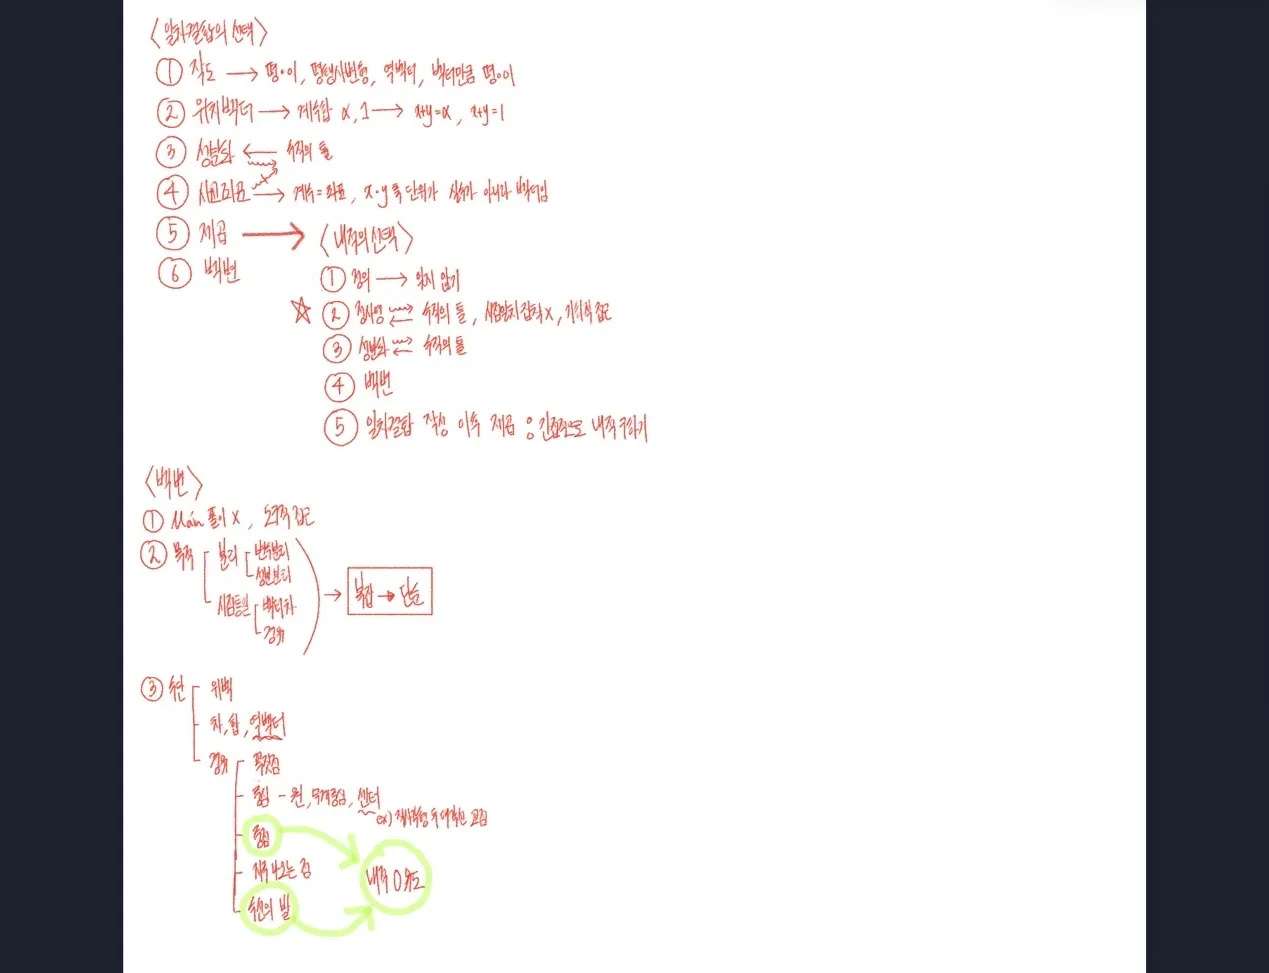 <일차결합의 선택>
① 작도 → 평·이, 평행사변형, 역벡터, 벡터만큼 평·이
② 위치벡터 → 계수합 α, 1 → x+y=α, x+y=1
③ 성분화 ← 수직의 틀
④ 사교좌표 → 계수=좌표, x·y축 단위가 실수가 아니라 벡터임
⑤ 제곱 →
⑥ 벡변
<내적의 선택>
① 정의 → 잊지 않기
② 정사영 ⇄ 수직의 틀, 시점일치 집착 X, 기하적 접근
③ 성분화 ⇄ 수직의 틀
④ 벡변
⑤ 일차결합 작성 이후 제곱 : 간접적으로 내적 구하기
<벡변>
① Main 풀이 X,
② 목적 분리 변수분리
성분분리
시점통일 벡터차
경유
→ 복잡 → 단순
③ 수단 위벡
차, 합, 역벡터
경유 꼭짓점
중심 - 원, 무게중심, 센터
ex) 직사각형 두 대각선 교점
중점
자주 나오는 점
수선의 발
내적 0 유도